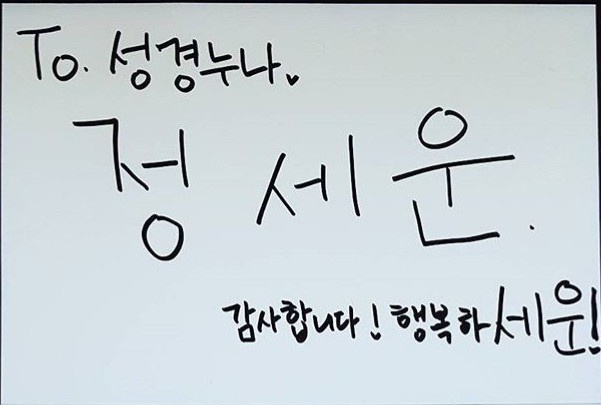 To. 성경누나.
정 세운.
감사합니다! 행복하세운!